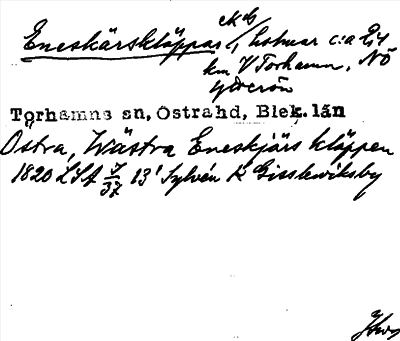 Eneskärskläppar ekb/, holmar c:a 2,4
km V Torhamn, NÖ
Ytterön
Torhamns sn, Östrahd, Blek. län
Östra, Wästra Eneskjärs kläppen
1820 LSA J/37 13¹ Sylvén k Gisslewiksby